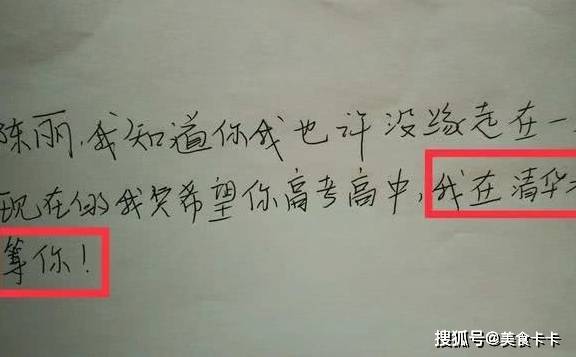 陈丽,我知道你我也许没缘走在一
现在的我只希望你高考高中,我在清华
等你!
搜狐号@美食卡卡